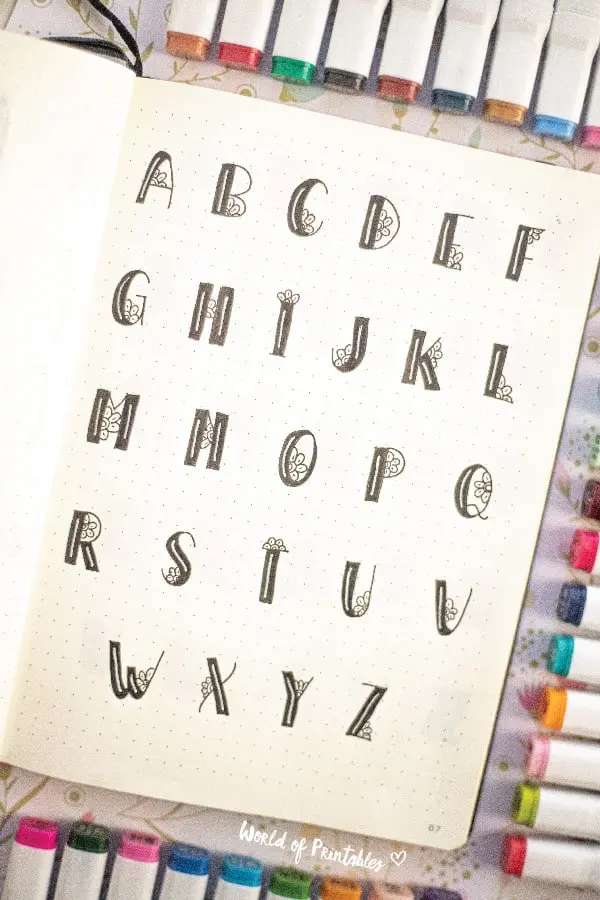 A B C D E F
G H I J K L
M N O P Q
R S T U V
W X Y Z
67
World of Printables